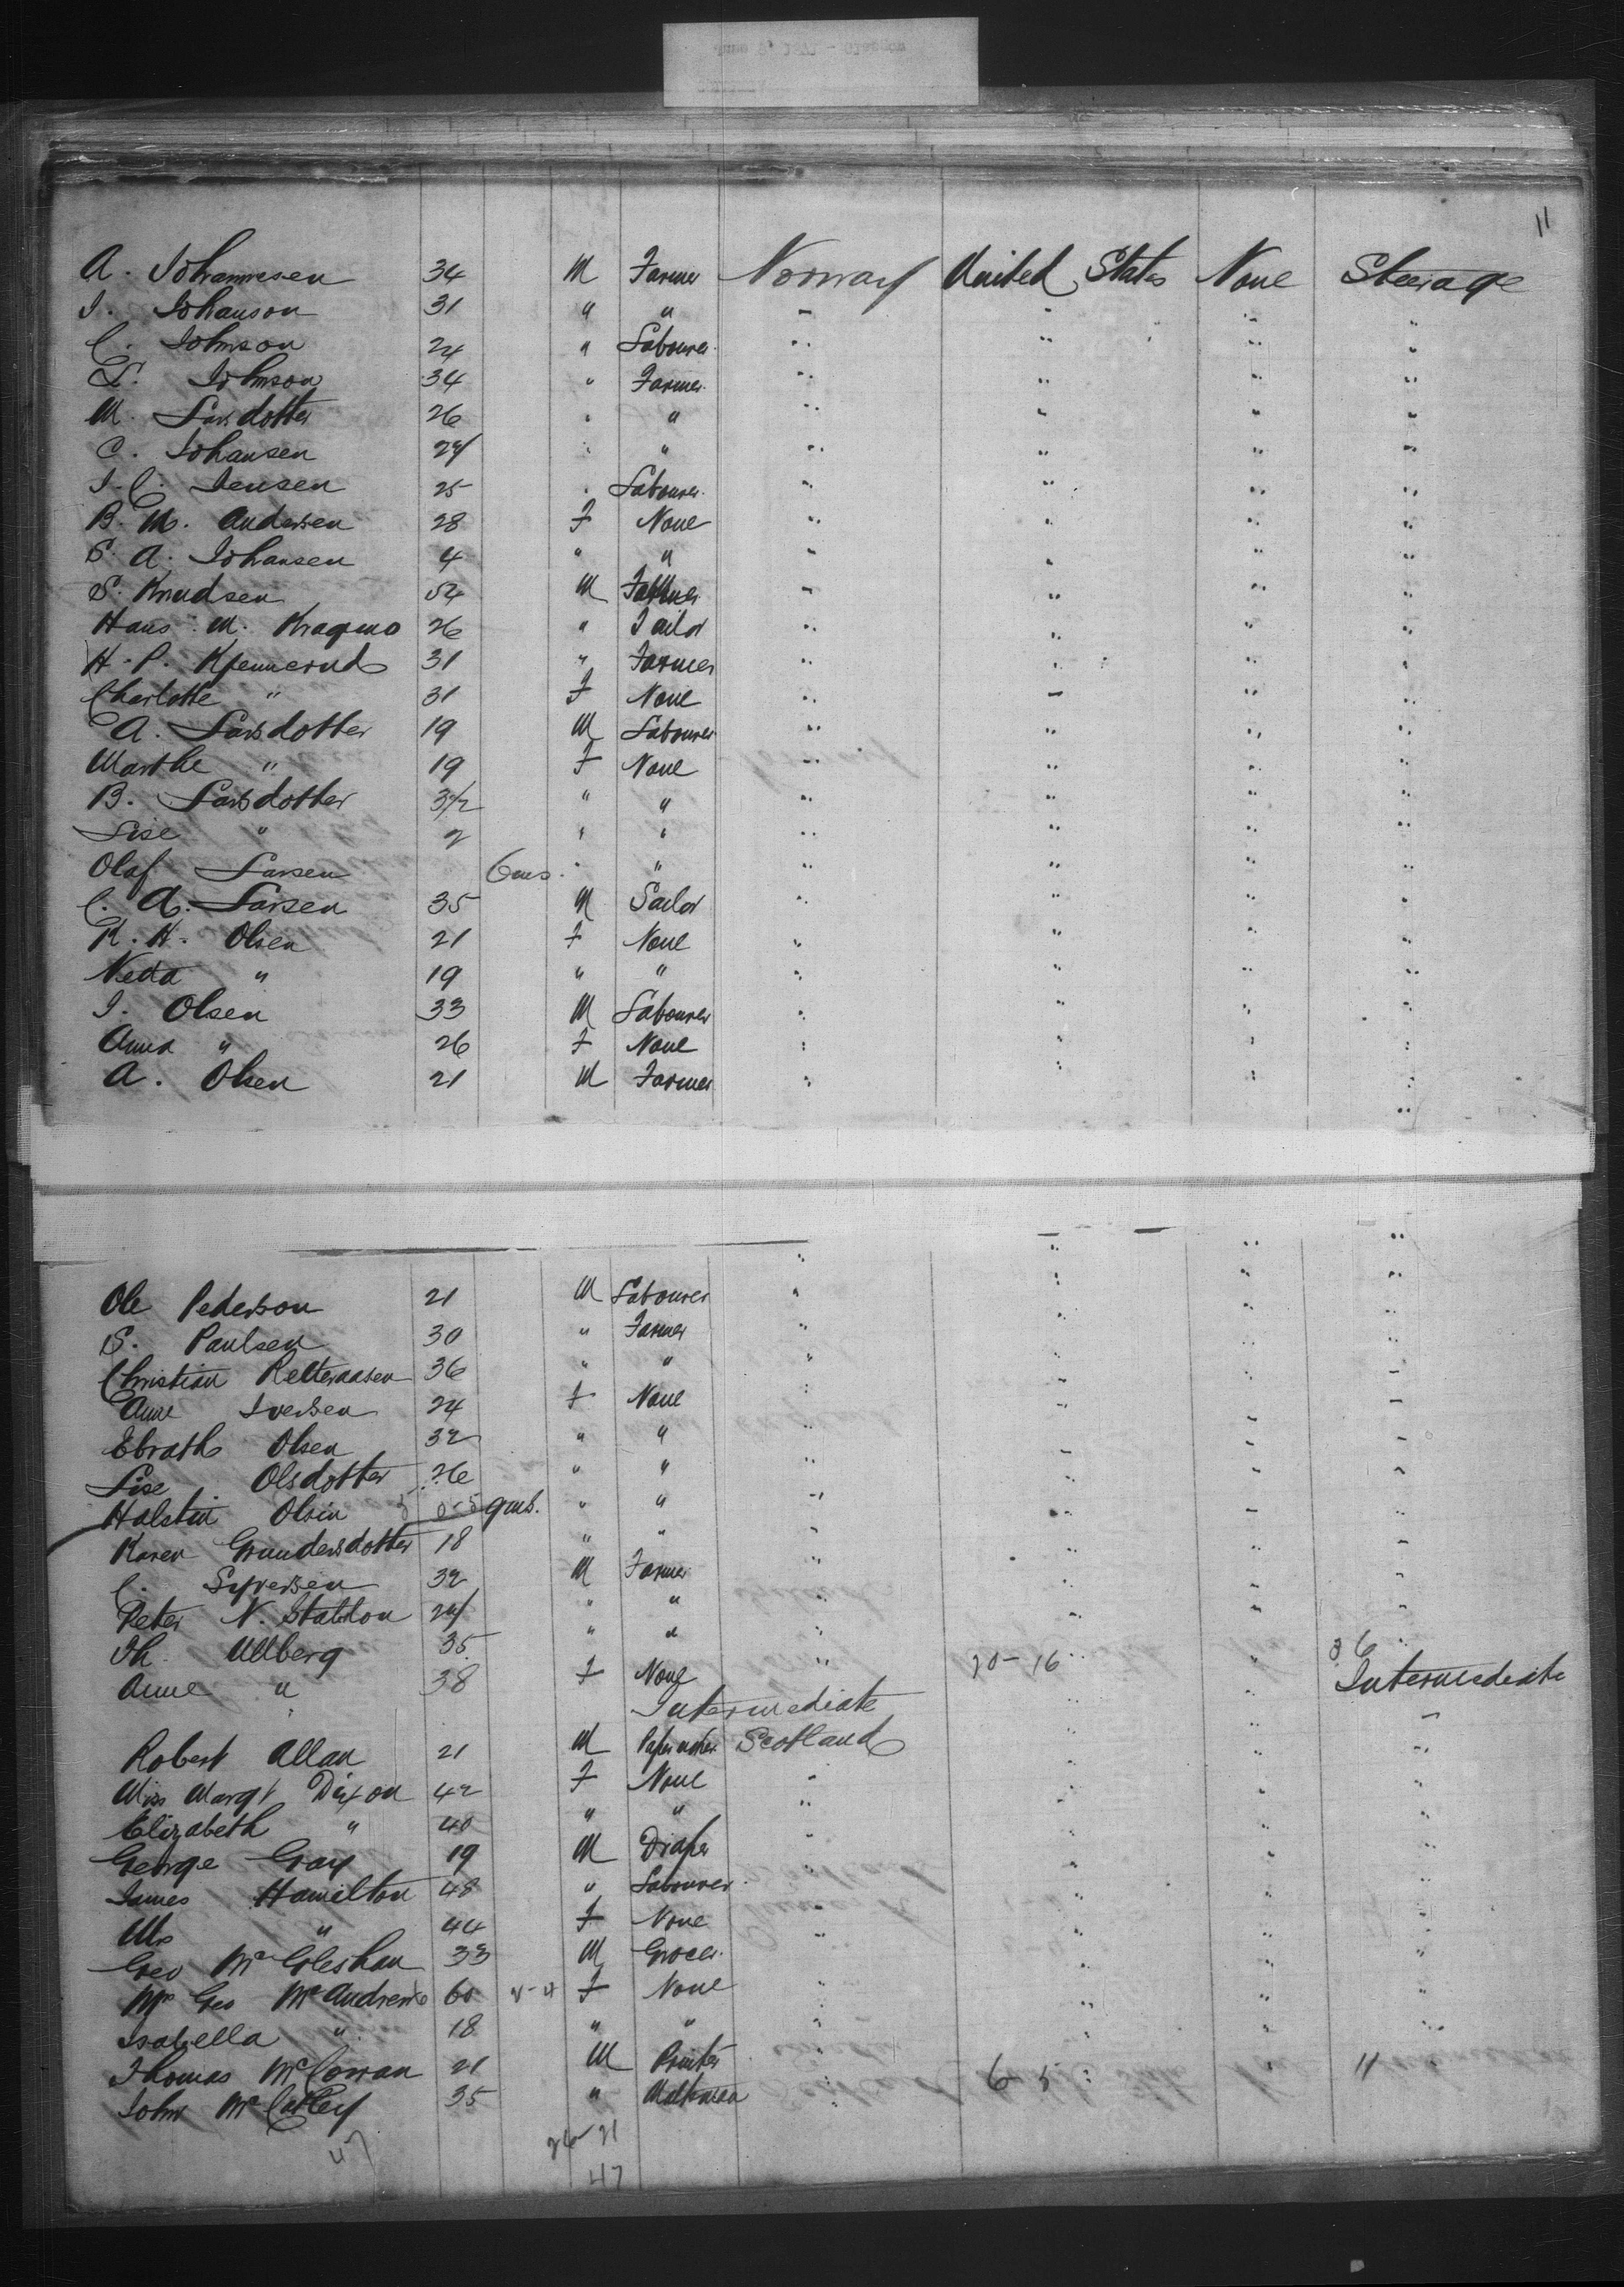 11
A. Johannesen 34 M Farmer Norway United States None Steerage
I. Johanson 31 " " " " " "
C. Johnson 24 " Labourer " " " "
L. Johnson 34 " Farmer " " " "
M. Larsdotter 26 " " " " " "
C. Johansen 24 " " " " " "
J. C. Jensen 25 " Labourer " " " "
B. M. Andersen 28 F None " " " "
S. A. Johansen 4 " " " " " "
S. Knudsen 54 M Farmer " " " "
Hans M. Kragmo 26 " Tailor " " " "
H. P. Kjennerud 31 " Farmer " " " "
Charlotte " 31 F None " " " "
A. Larsdotter 19 M Labourer " " " "
Marthe " 19 F None " " " "
B. Larsdotter 3/2 " " " " " "
Lise " 2 " " " " " "
Olaf Larsen 6 ms. " " " " " "
C. A. Larsen 35 M Sailor " " " "
K. H. Olsen 21 F None " " " "
Neda " 19 " " " " " "
I. Olsen 33 M Labourer " " " "
Anna " 26 F None " " " "
A. Olsen 21 M Farmer " " " "
Ole Pederson 21 M Labourer " " " "
S. Paulsen 30 " Farmer " " " "
Christian 36 " " " " " "
Anne Iversen 24 F None " " " "
Olsen 32 " " " " " "
Lise Olsdotter 26 " " " " " "
Halstin Olsin 9 ms. " " " " " "
Karen Gundersdotter 18 " " " " " "
C. Syversen 32 M Farmer " " " "
Peter N. 24 " " " " " "
Th. Ullberg 35 " " " 20-16 " 36
Anne " 38 F None " " " Intermediate
Intermediate
Robert Allan 21 M Paper maker Scotland " " "
Miss Margt Dixon 42 F None " " " "
Elizabeth " 40 " " " " " "
George Gray 19 M Draper " " " "
James Hamilton 48 " Labourer " " " "
Mrs " 44 F None " " " "
Geo McGleshan 33 M Grocer " " " "
Mrs Geo McAndrew 60 F None " " " "
Isabella " 18 " " " " " "
Thomas McCowan 21 M Printer " " " "
John McCathey 35 " Maltman " 6 5 " 11
47 26-21
47